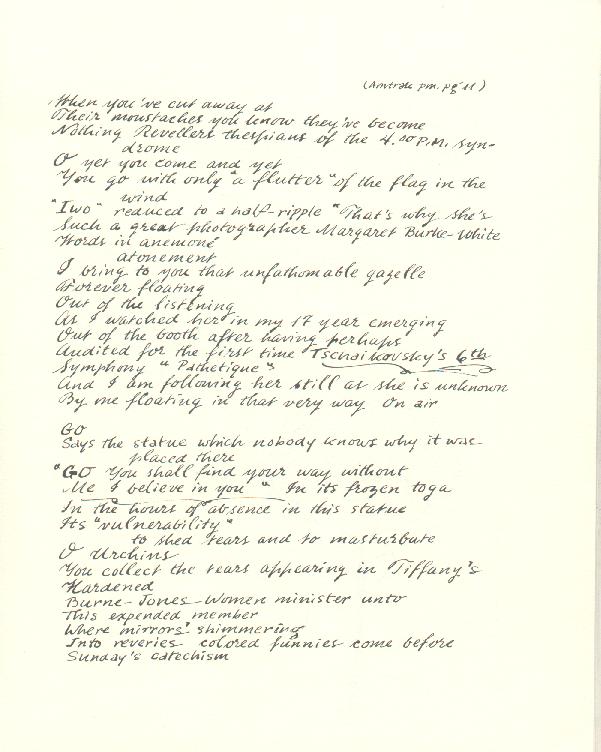 (Amtrak pm. pg 11)
When you've cut away at
Their moustaches you know they've become
Nothing Revellers thespians of the 4.00 P.M. syn-
drome
O yet you come and yet
You go with only "a flutter" of the flag in the
wind
"Iwo" reduced to a half-ripple "That's why she's
Such a great photographer Margaret Burke-White
Words in anemone
atonement
I bring to you that unfathomable gazelle
Forever floating
Out of the listening
As I watched her in my 17 year emerging
Out of the booth after having perhaps
Audited for the first time Tschaikovsky's 6th
Symphony "Pathetique"
And I am following her still as she is unknown
By me floating in that very way On air
GO
Says the statue which nobody knows why it was
placed there
"GO You shall find your way without
Me I believe in you" In its frozen toga
In the hours of absence in this statue
Its "vulnerability"
to shed tears and to masturbate
O Urchins
You collect the tears appearing in Tiffany's
Hardened
Burne-Jones-Women minister unto
This expended member
Where mirrors' shimmering
Into reveries colored funnies come before
Sunday's catechism